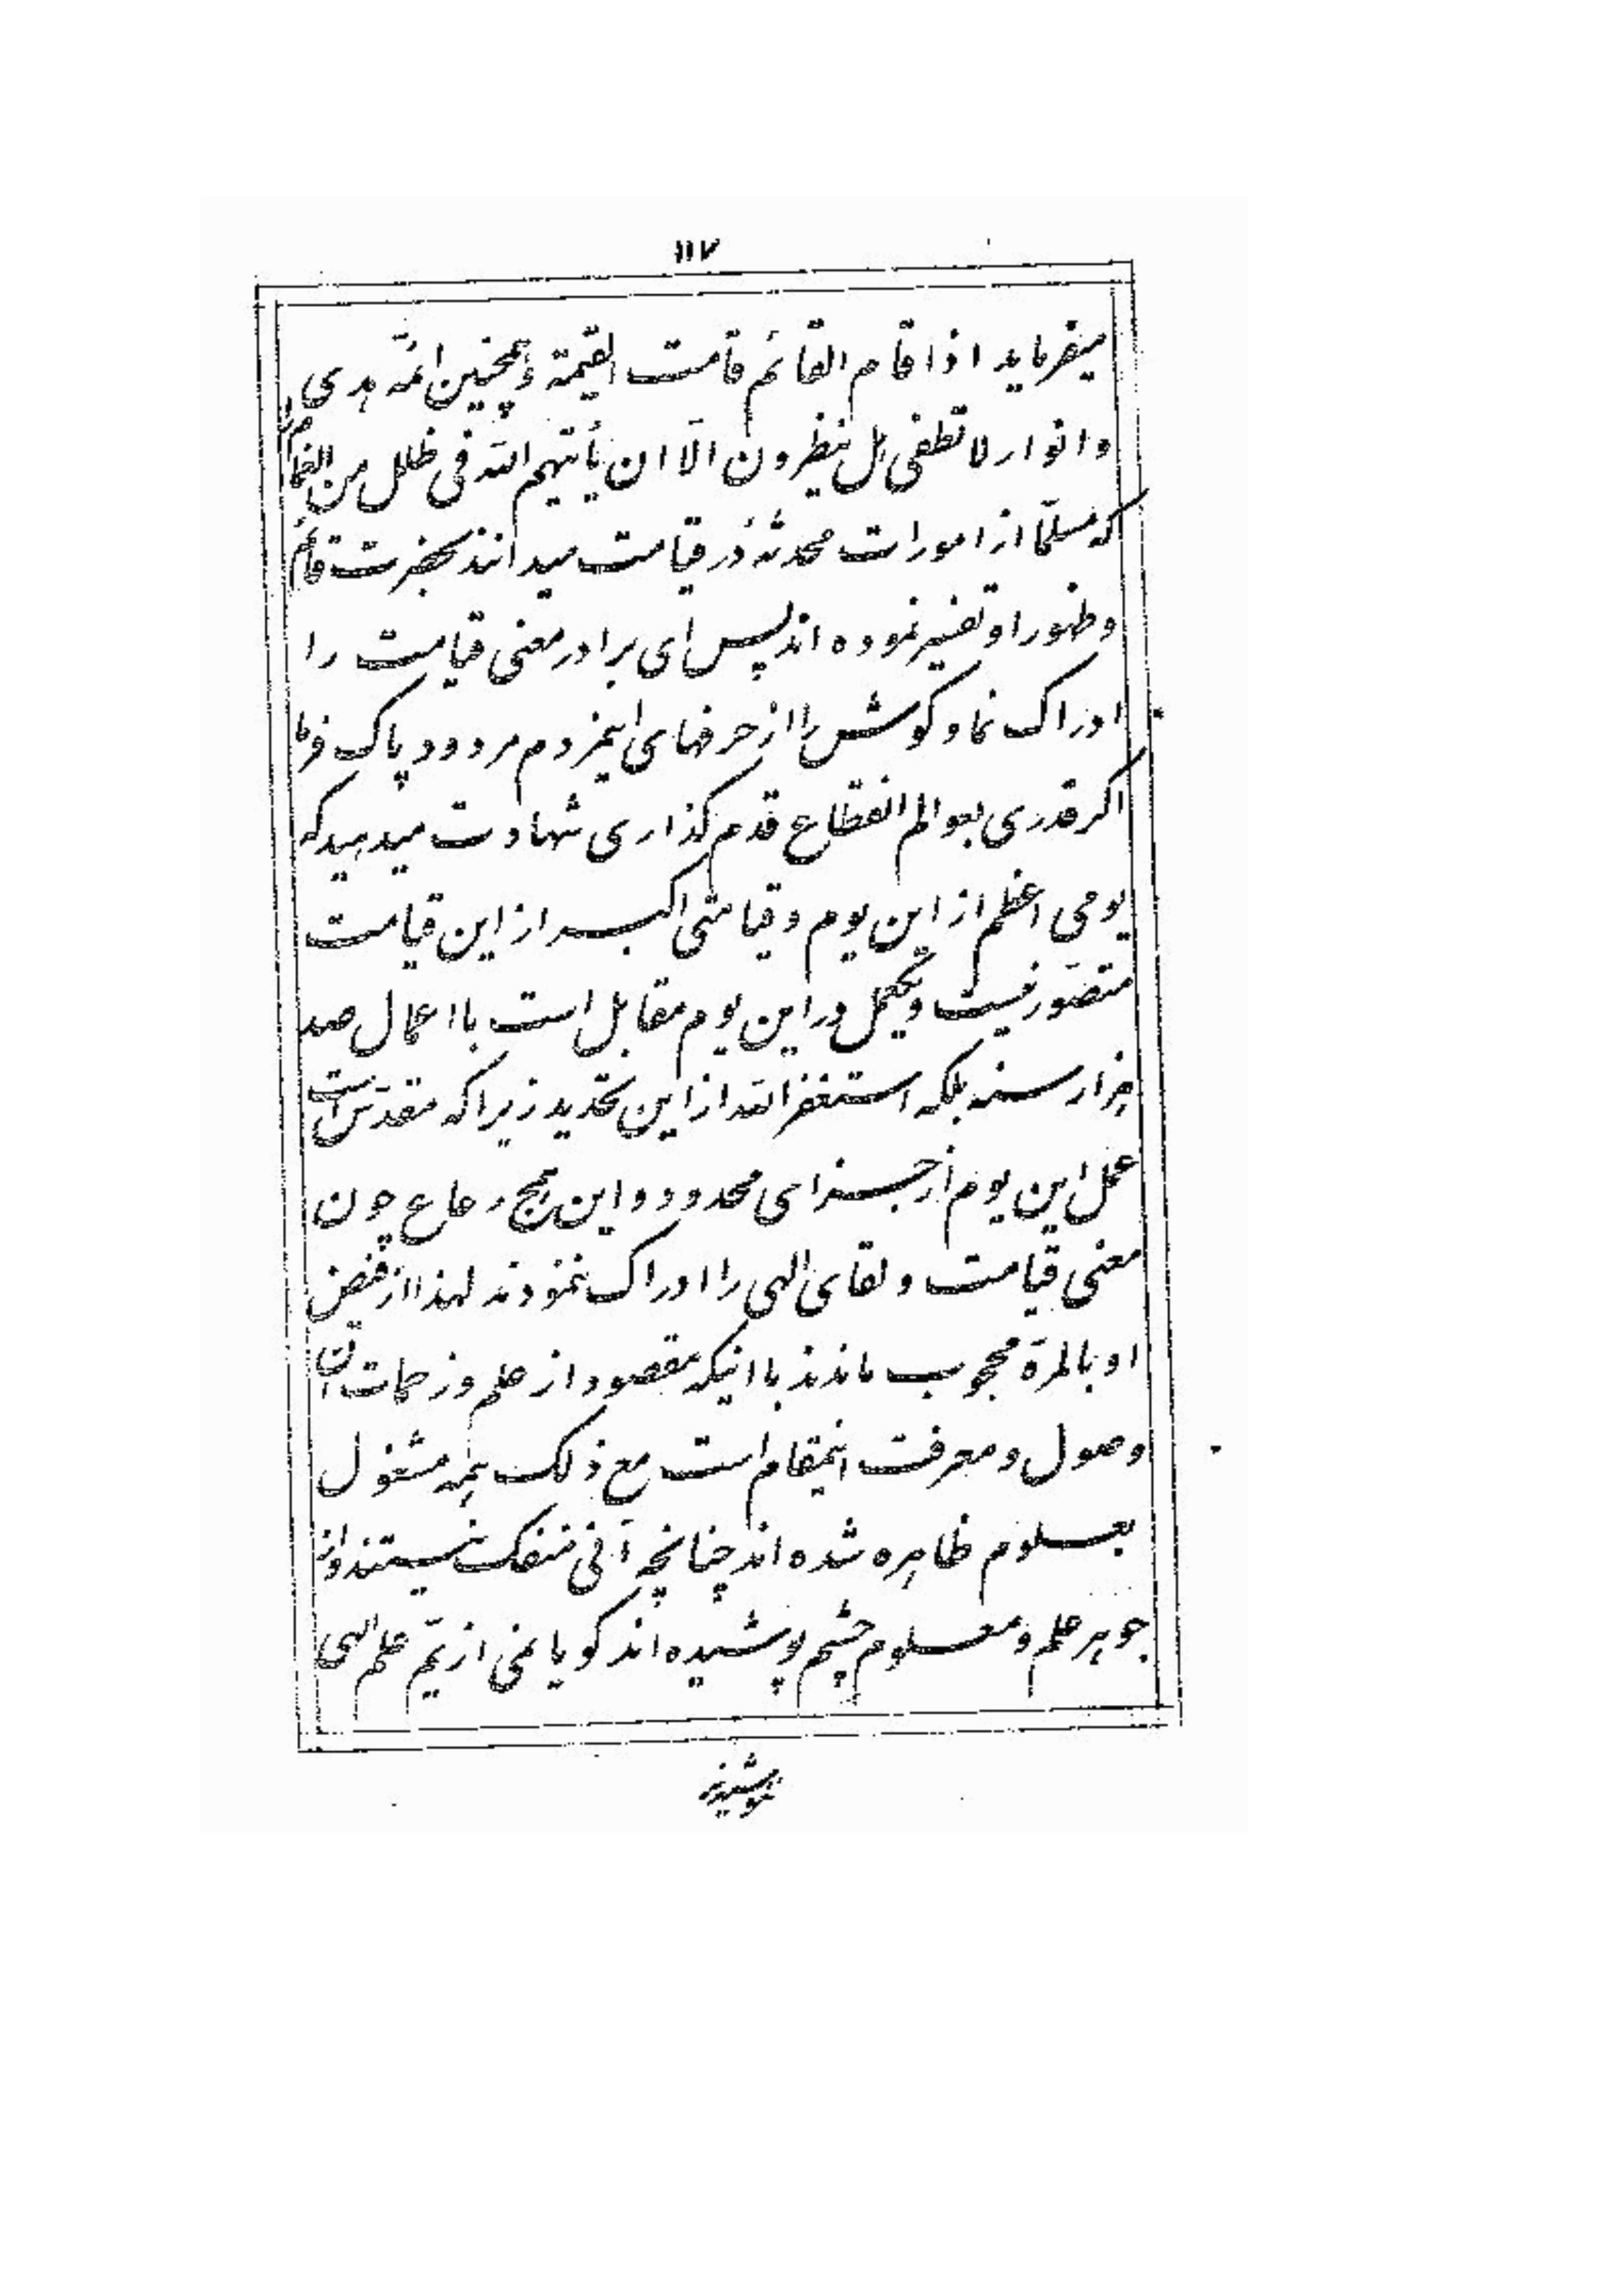 ١١٧
میفرماید اذا قام القائم قامت القیمة و همچنین ائمّه هدی
و انوار لا تطفی هل ینظرون الّا ان یأتیهم اللّه فی ظلل من الغمام را
که مسلّماً از امورات محدثه در قیامت میدانند بحضرت قائم
و ظهور او تفسیر نموده اند پس ای برادر معنی قیامت را
ادراک نما و کوش را از حرفهای اینمردم مردود پاک فرما
اکر قدری بعوالم انقطاع قدم کذاری شهادت میدهید که
یومی اعظم از این یوم و قیامتی اکبر از این قیامت
متصوّر نیست و یکعمل در این یوم مقابل است با اعمال صد
هزار سنه بلکه استغفر اللّه از این تحدید زیرا که مقدّس است
عمل این یوم از جزای محدود و این همج رعاع چون
معنی قیامت و لقای الهی را ادراک ننمودند لهذا از فیض
او بالمرّة محجوب ماندند با اینکه مقصود از علم و زحمات ان
وصول و معرفت اینمقام است مع ذلک همه مشغول
بعلوم ظاهره شده اند چنانچه آنی منفک نیستند و از
جوهر علم و معلوم چشم پوشیده اند کویا نمی از یمّ علم الهی
ننوشیدند